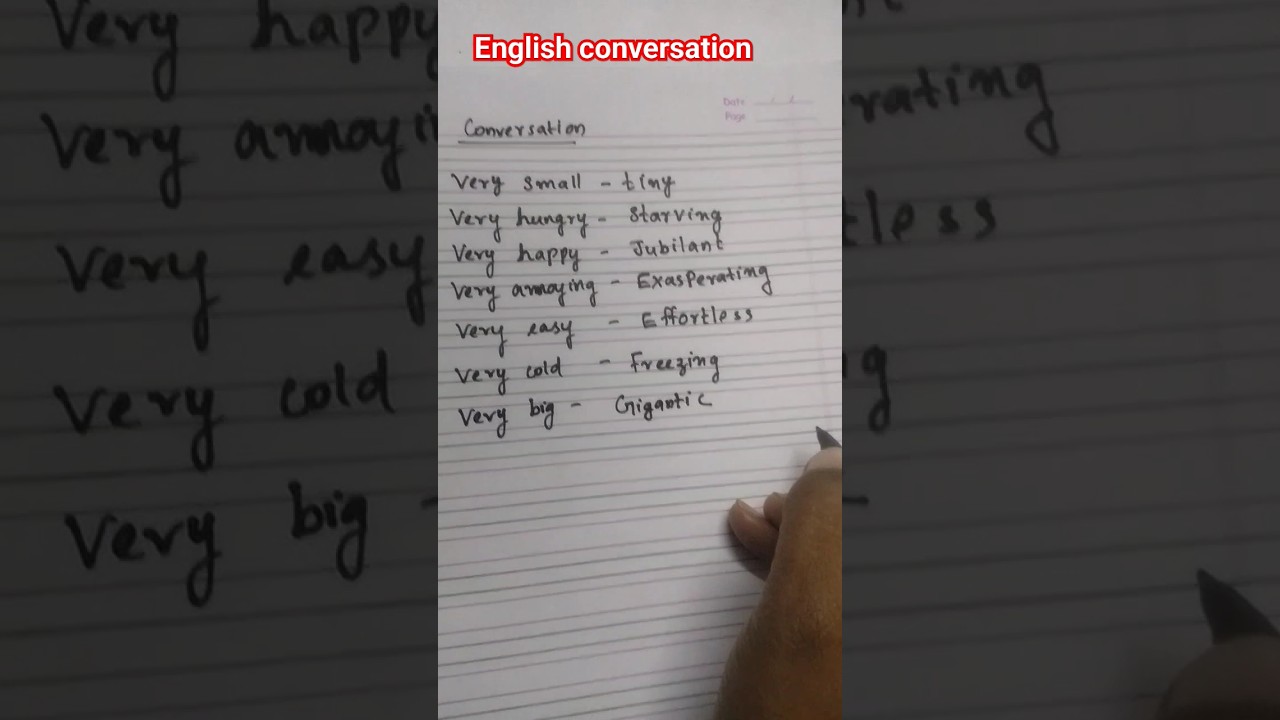 English conversation
Date
Page
Conversation
Very small - tiny
Very hungry - Starving
Very happy - Jubilant
Very annoying - Exasperating
Very easy - Effortless
Very cold - Freezing
Very big - Gigantic